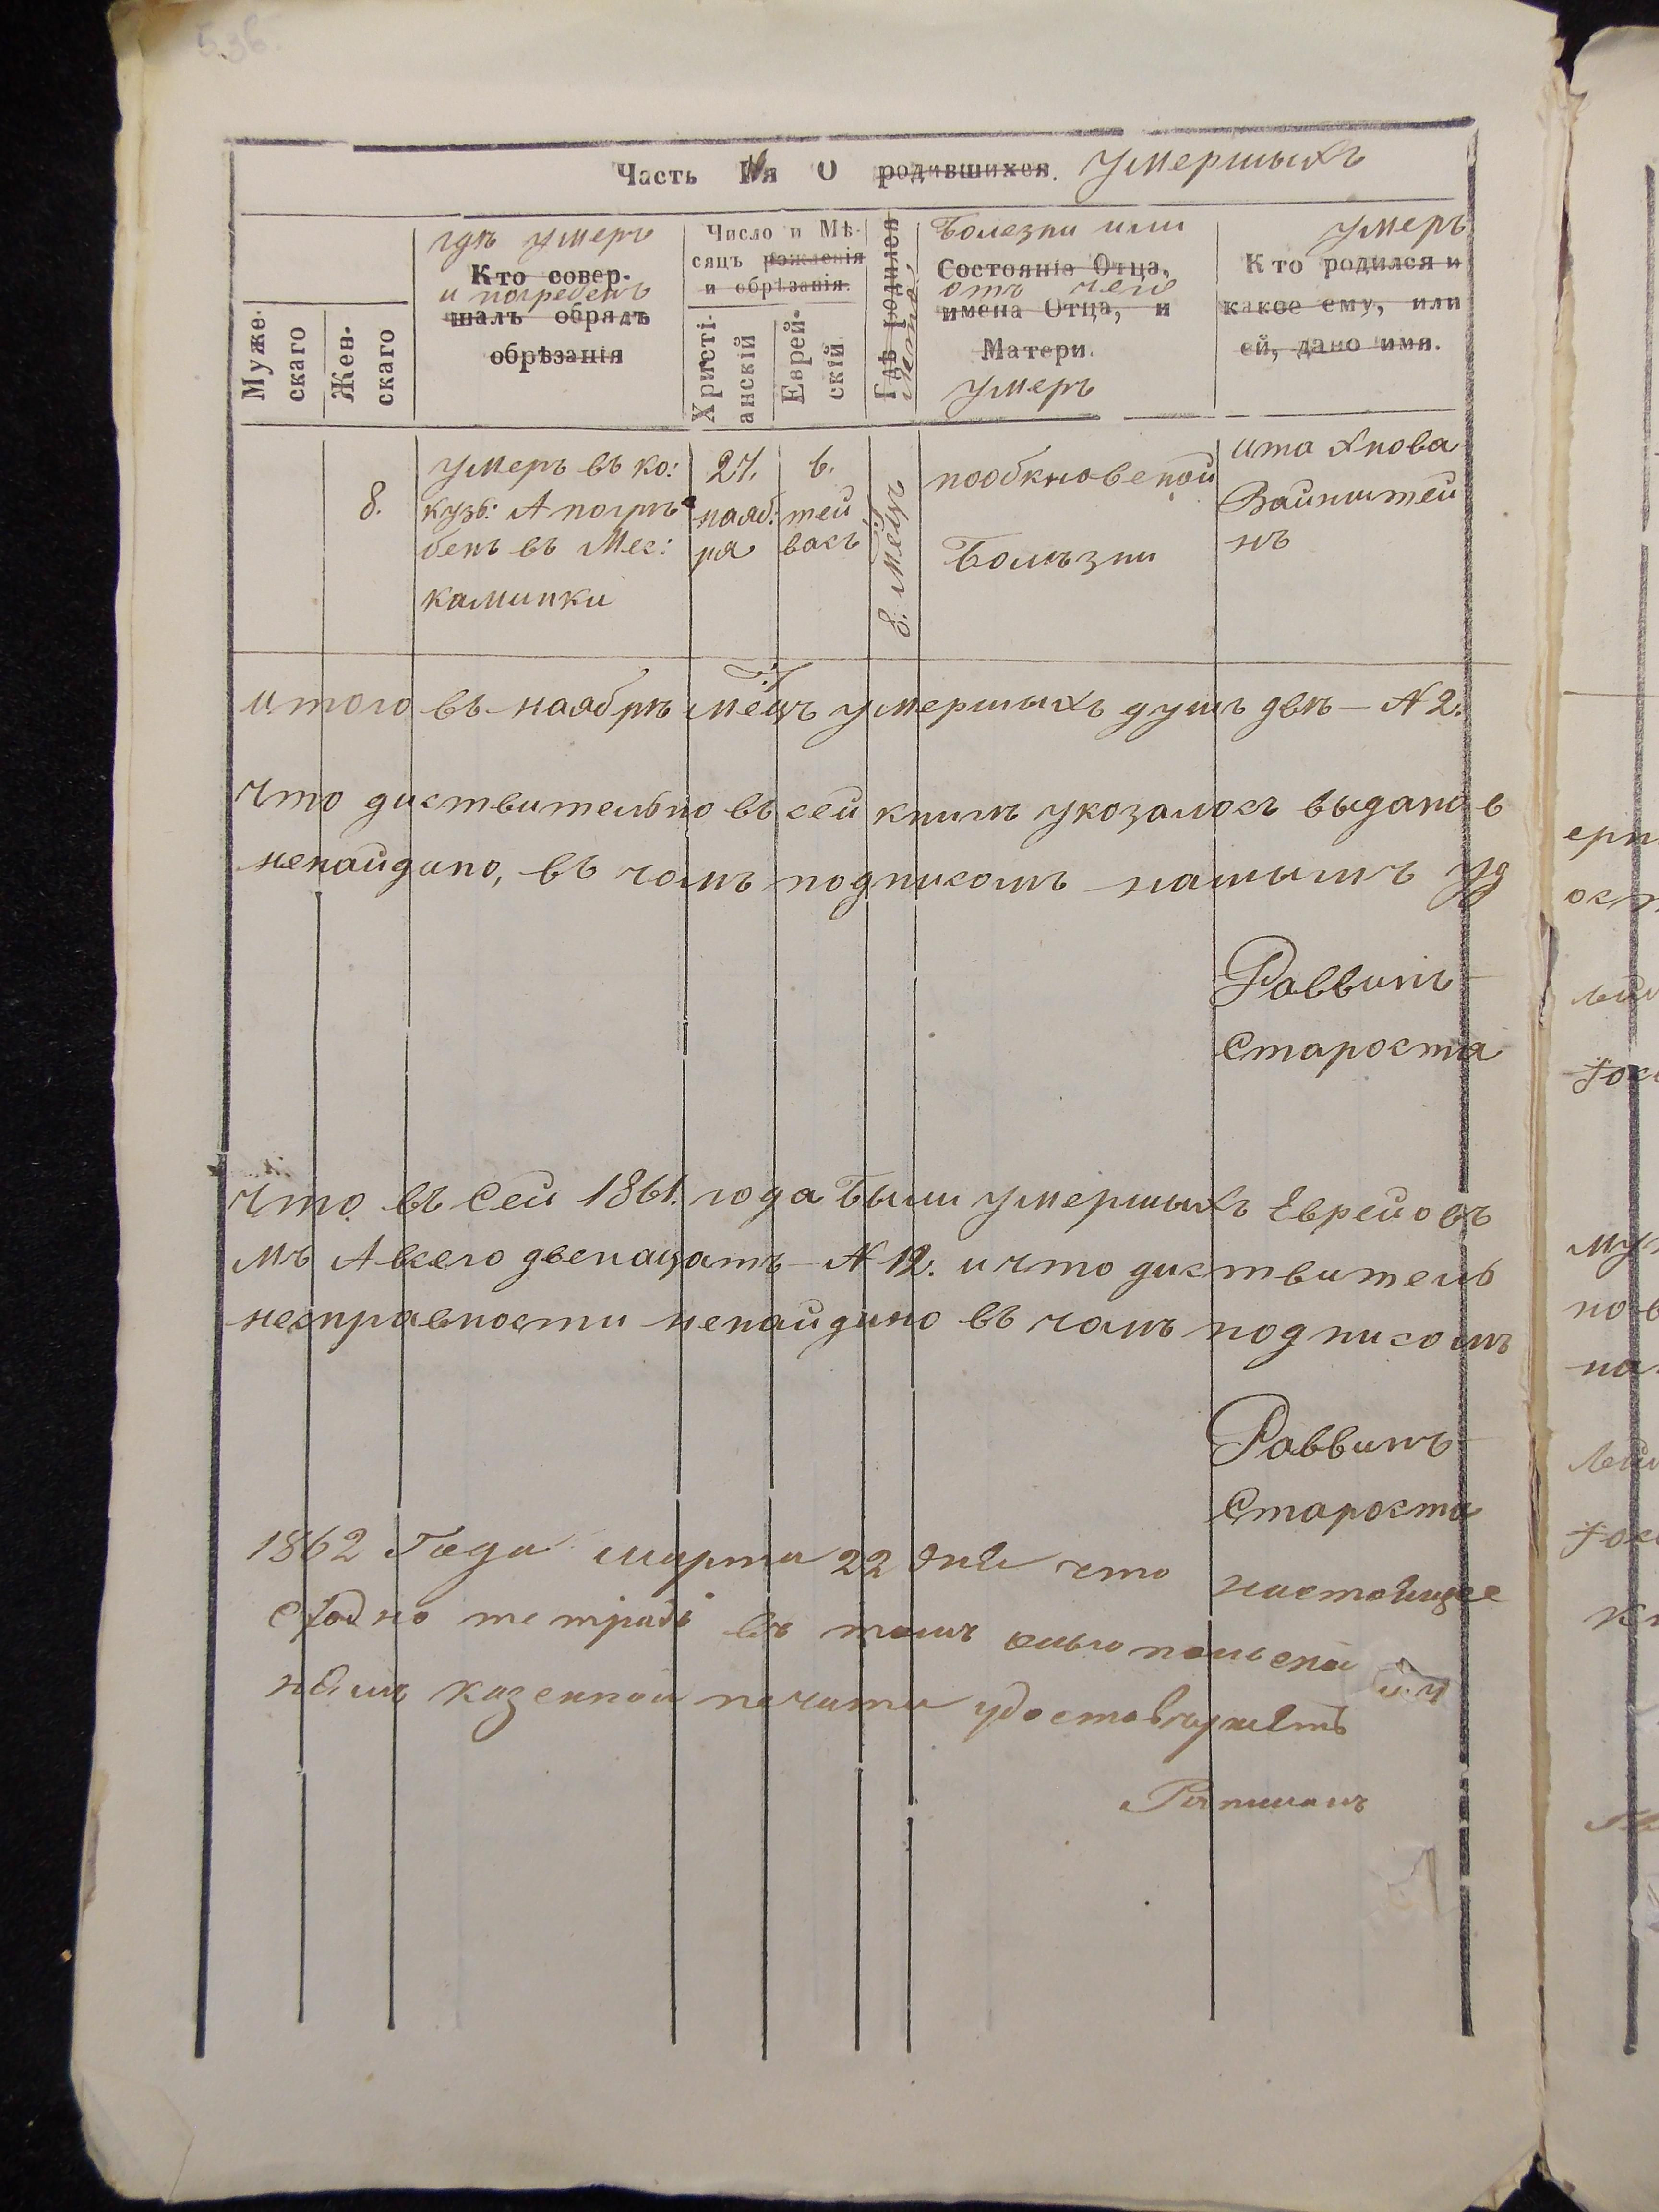 Часть я О родившихся. умершыхъ
гдѣ умеръ
Кто совер-
и погребенъ
шалъ обрядъ
обрѣзанія
Число и Мѣ-
сяцъ рожденія
и обрѣзанія.
Муже-
скаго
Жен-
скаго
Христі-
анскій
Еврей-
скій
Гдѣ родился
лета
Болезни или
Состояніе Отца,
отъ чего
имена Отца, и
Матери.
умеръ
умеръ
Кто родился и
какое ему, или
ей, дано имя.
8.
умеръ въ ко:
кузъ: А погрѣ
бенъ въ Мес:
каминки
27.
нояб:
ря
6.
тей
васъ
8. мѣцъ
пообкновеной
Болѣзни
ита Янова
Вайнштей
нъ
итого въ ноябрѣ мѣцъ умершыхъ душъ двѣ — N 2.
Что диствительно въ сей книгѣ укозалось выдано в
ненайдино, въ чомъ подписомъ нашымъ уд
Раввинъ
Староста
Что въ Сей 1861. года были умершыхъ Еврейовъ
мъ А всего двенацать N 12. и что диствитель
несправности ненайдино въ чомъ подписомъ
Раввинъ
Староста
1862 Года марта 22 дня что настоящее
сходно тетрадь въ томъ
казенной печати удостовѣряетъ